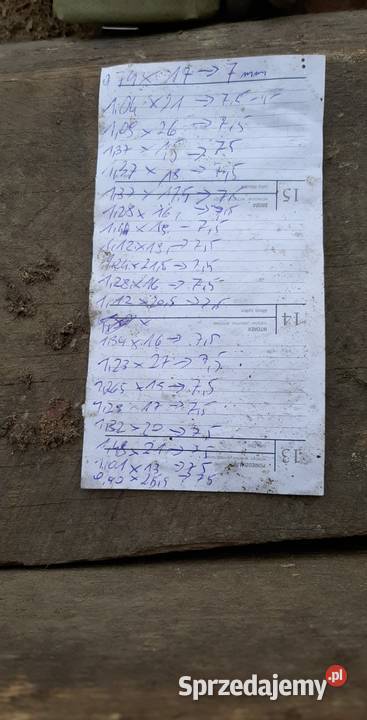 0,79 x 17 → 7 mm
1,04 x 21 → 7,5
1,09 x 26 → 7,5
1,37 x 19 → 7,5
1,37 x 18 → 7,5
1,37 x 17,5 → 7,5
15
ŚRODA
1,28 x 16, → 7,5
x 18 - 7,5
1,12 x 19, → 7,5
1,24 x 21,5 → 7,5
1,28 x 16 → 7,5
1,12 x 20,5 → 7,5
14
WTOREK
1,34 x 16 → 7,5
1,23 x 27 → 7,5
1,265 x 19 → 7,5
1,29 - 17 → 7,5
1,32 x 20 → 7,5
x 21 → 7,5
13
1,01 x 13 → 7,5
0,40 x 26,5 → 7,5
Sprzedajemy.pl